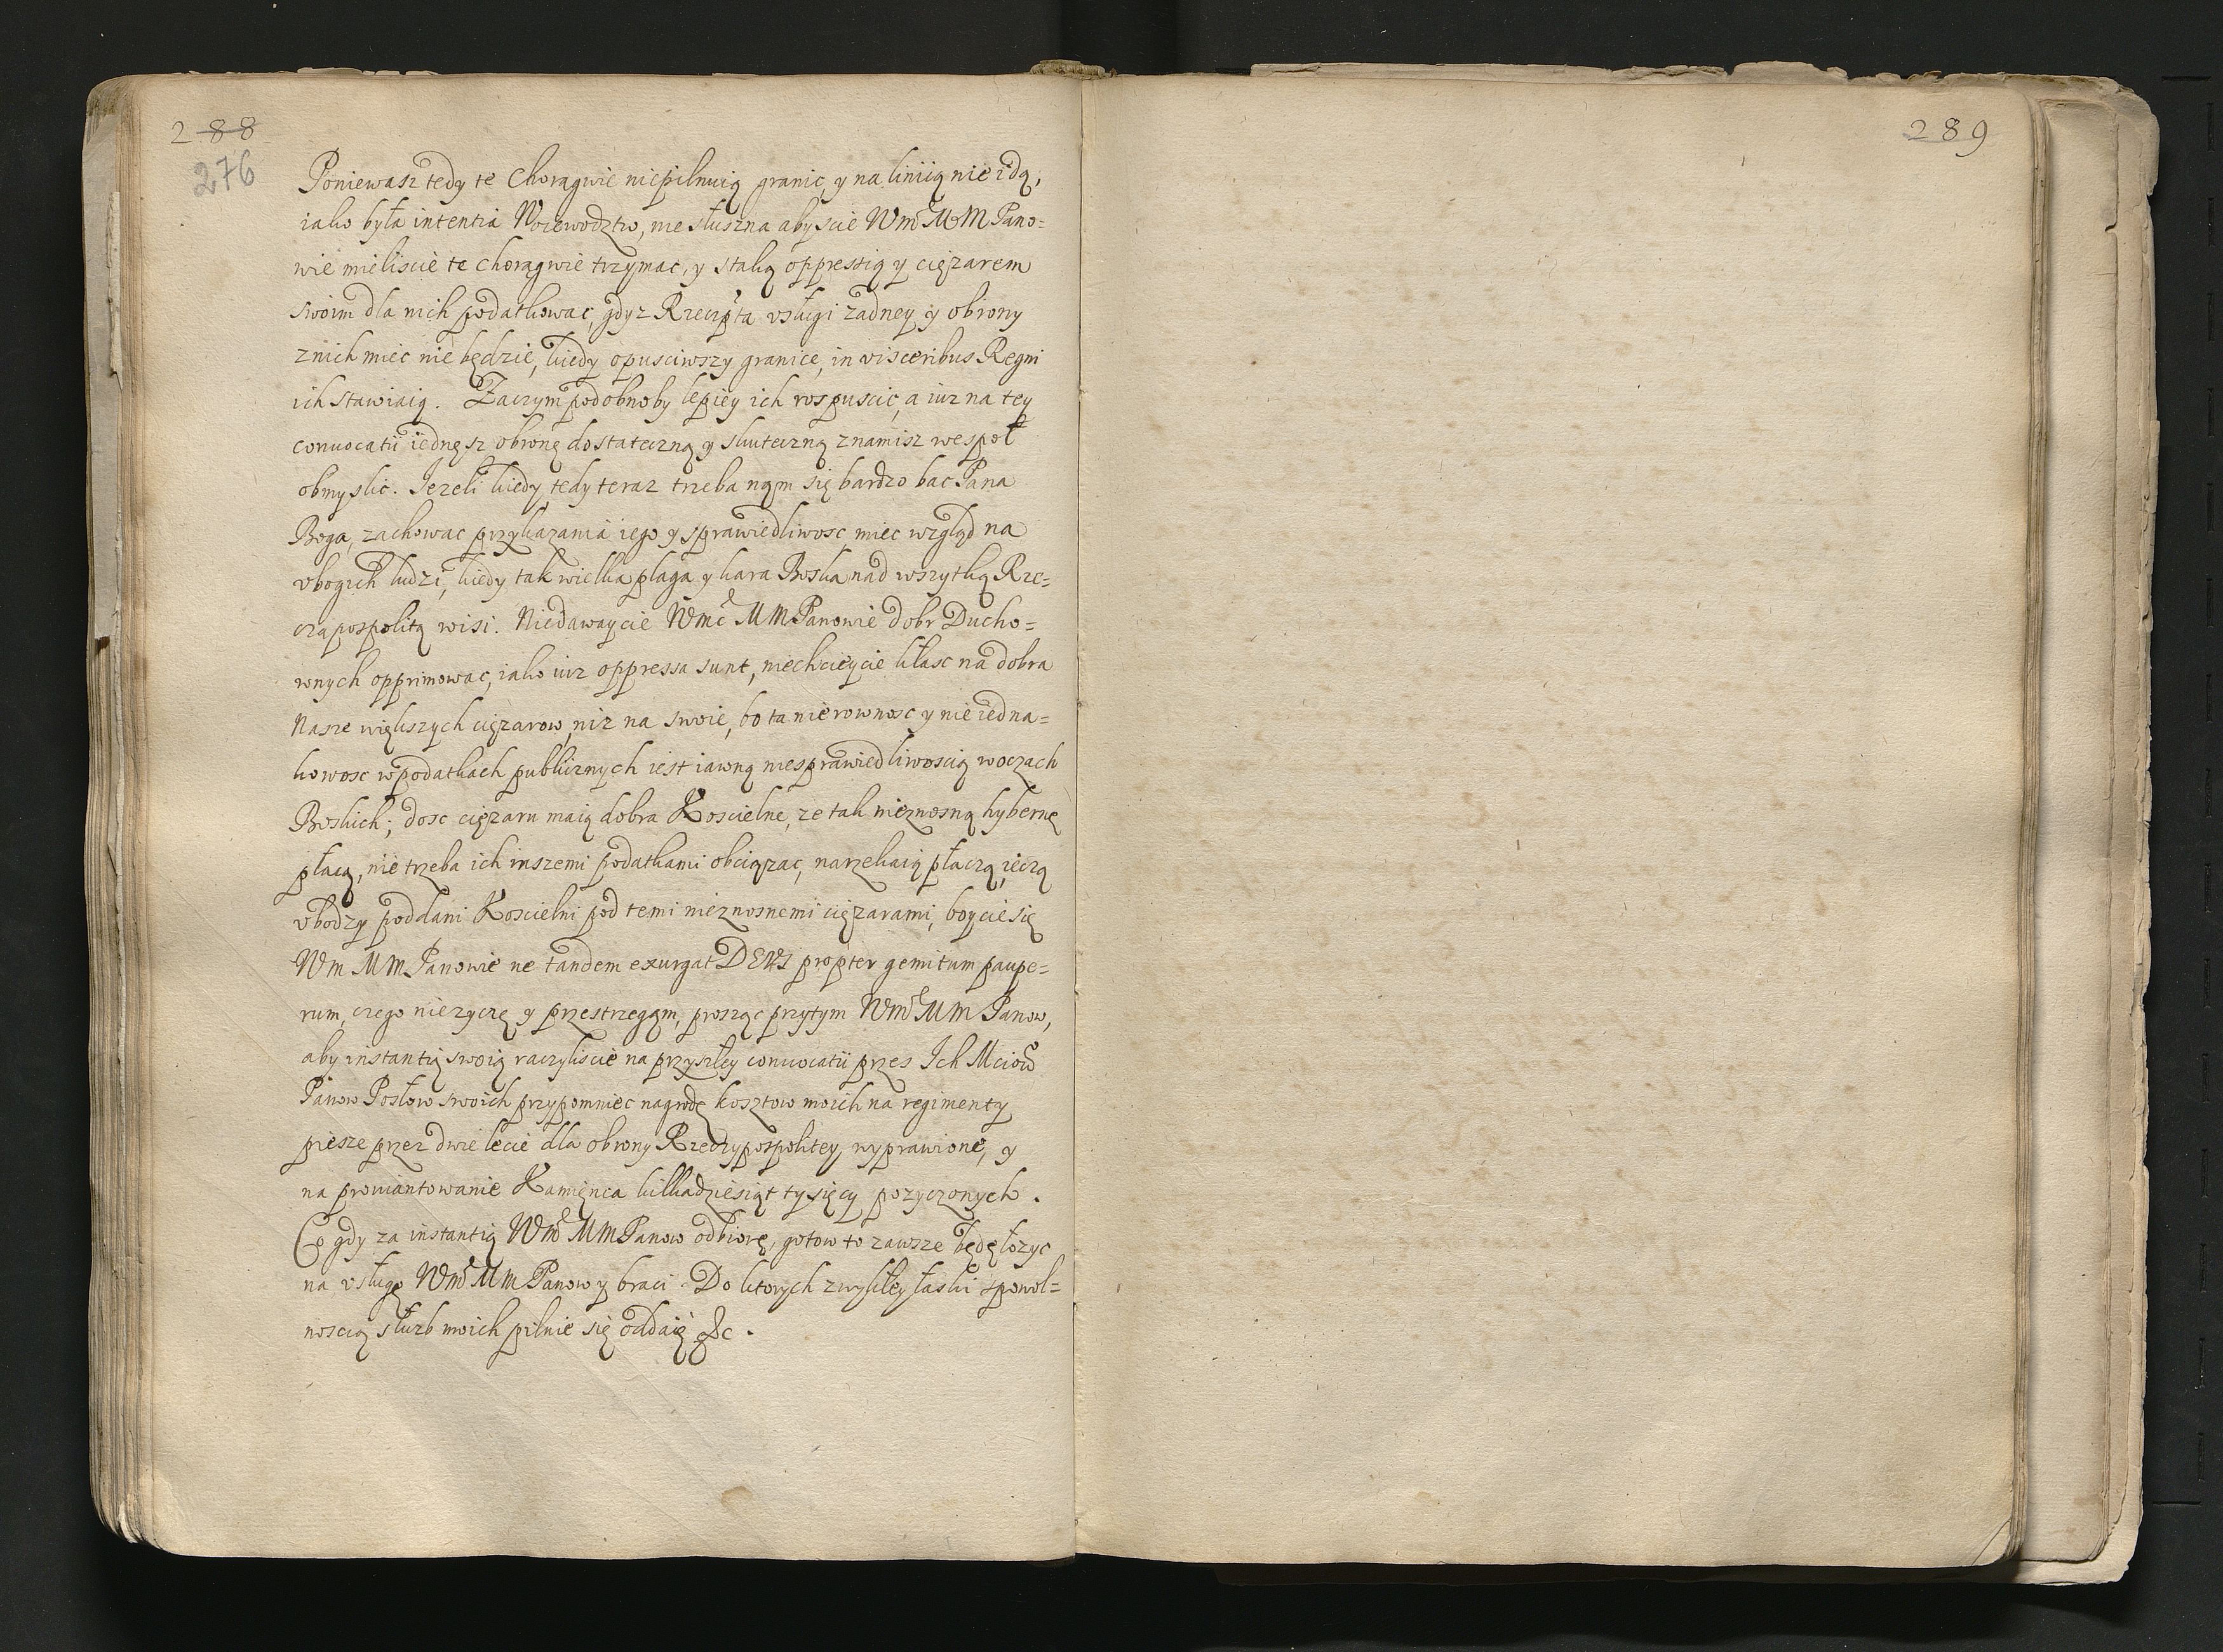 288
276
Poniewasz tedy te Chorągwie niepilnuią granic, y na liniią nie idą,
iako była intentia Woiewodztw, nie słuszna abyscie Wmć MM Pano=
wie mieliscie te chorągwie trzymac, y stałą oppressią y cięzarem
swoim dla nich podatkowac, gdyz Rzeczpta vsługi zadney y obrony
znich miec nie będzie, kiedy opusciwszy granice, in visceribus Regni
ich stawiaią. Zaczym podobnoby lepiey ich rospuscic, a iuz na tey
convocatii iednęsz obronę dostateczną y skuteczną znamisz wespoł
obmyslic. Jezeli kiedy tedy teraz trzeba nąm się bardzo bac Pana
Boga, zachowac przykazania iego y sprawiedliwosc, miec wzgląd na
vbogich ludzi, kiedy tak wielka plaga y kara Boska nad wszytką Rze=
czapospolitą wisi. Niedawaycie Wmć MM Panowie dobr Ducho=
wnych opprimowac, iako iuz oppressa sunt, niechcieycie kłasc na dobra
Nasze większych cięzarow, niz na swoie, bo ta nierownosc y nieiedna=
kowosc w podatkach publicznych iest iawną niesprawiedliwoscią woczach
Boskich; dosc cięzaru maią dobra Koscielne, ze tak nieznosną hybernę
płacą, nie trzeba ich inszemi podatkami obciązac, narzekaią płaczą, ięczą
vbodzy poddani Koscielni pod temi nieznosnemi cięzarami, boycie się
Wm MM Panowie ne tandem exurgat DEUS propter gemitum paupe=
rum, czego nie zyczę y przestrzegąm, prosząc przytym Wmć MM Panow,
aby instantią swoią raczyliscie na przyszłey convocatii przes Ich Mciow
Panow Posłow swoich przypomniec nagrodę kosztow moich na regimenty
piesze przez dwie lecie dla obrony Rzeczypospolitey wyprawione, y
na prowiantowanie Kamięnca kilkadziesiąt tysięcy pozyczonych.
Co gdy za instantią Wmć MM Panow odbiorę, gotow to zawsze będę łozyc
na vsługę Wmć MM Panow y braci. Do ktorych zwykłey łaski spowol=
noscią słuzb moich pilnie się oddaię &c.
289